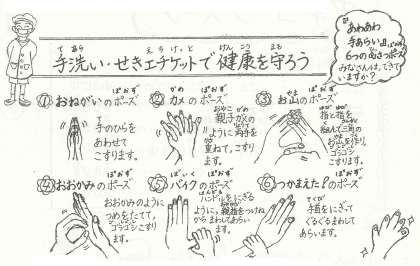 手洗い・せきエチケットで健康を守ろう
あわあわ
手あらい
6つの
ポーズ
みなさんは、できて
いますか？
① おねがいのポーズ
手のひらを
あわせて
こすります。
② カメのポーズ
親子ガメの
ように両手を
重ねて、こすり
ます。
③ お山のポーズ
指と指を
組んで三角の
お山を作り、
ゴシゴシ
こすります。
④ おおかみのポーズ
おおかみのように
つめをたてて、
ゴシゴシこすり
ます。
⑤ バイクのポーズ
ハンドルをにぎる
ように、親指をつけね
からまわしてあらい
ます。
⑥ つかまえた!のポーズ
手首をにぎって
ぐるぐるまわして
あらいます。